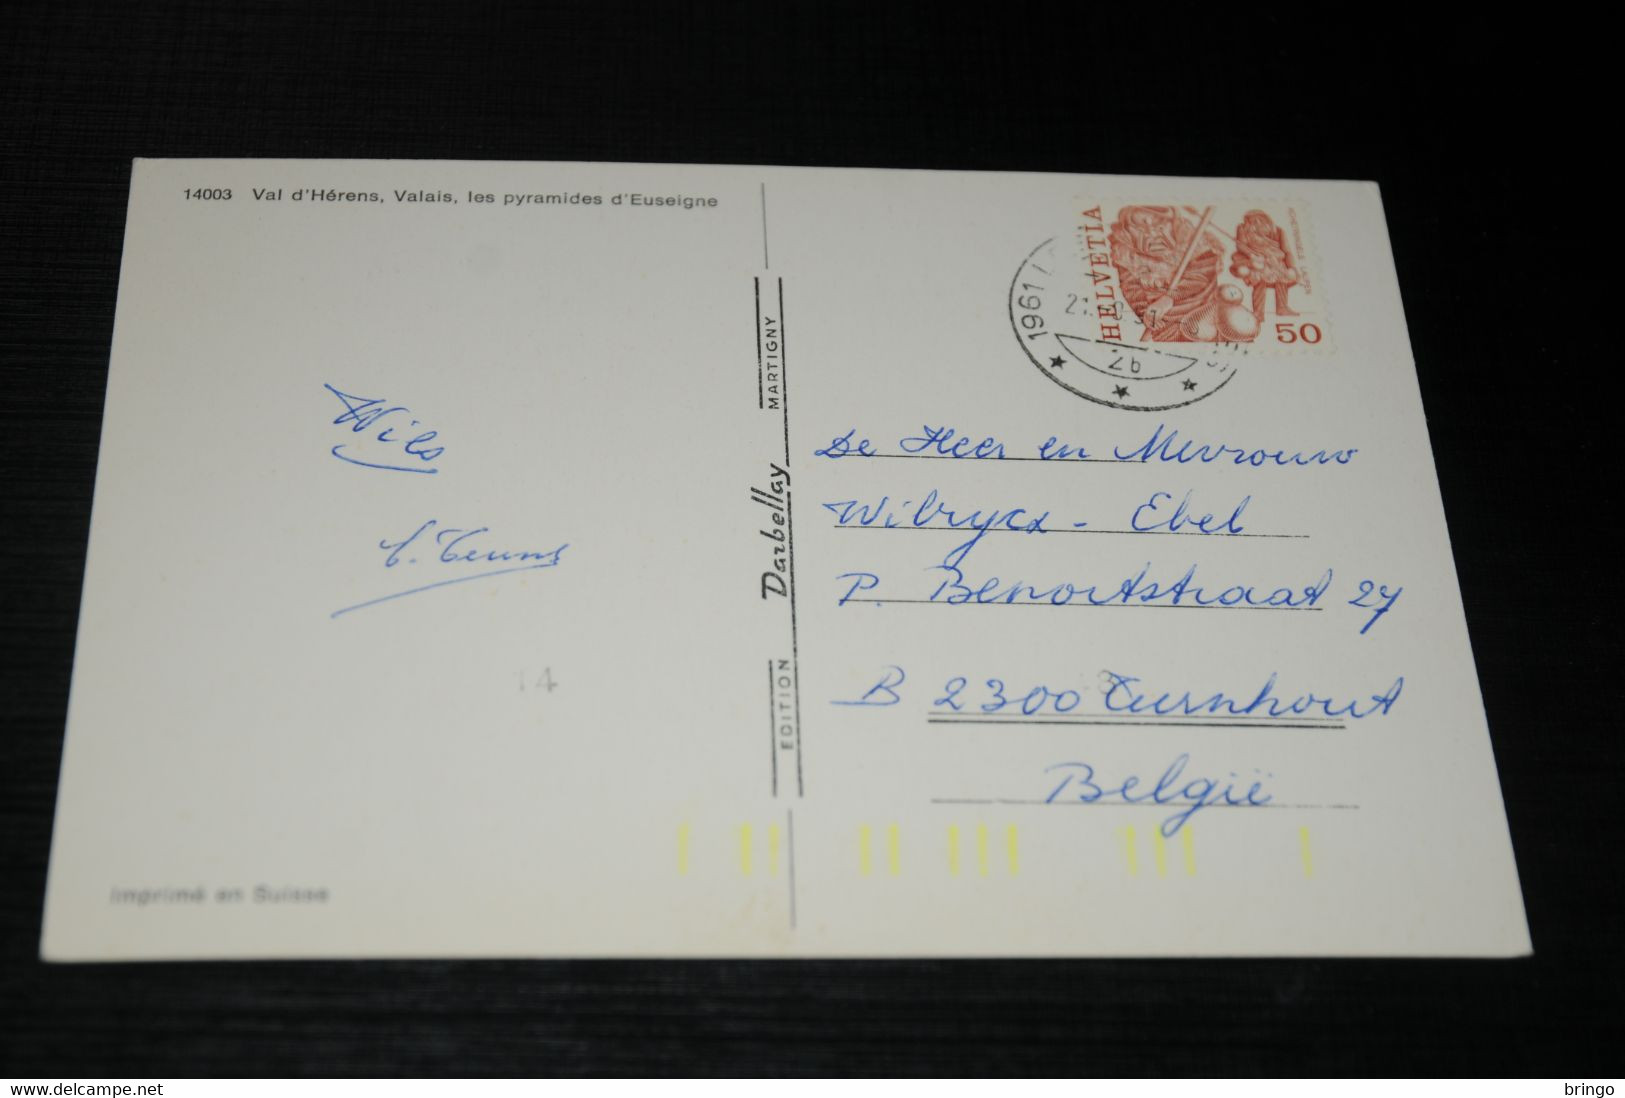 14003 Val d'Hérens, Valais, les pyramides d'Euseigne
HELVETIA
50
1961
2b
Wils
EDITION Darbellay MARTIGNY
De Heer en Mevrouw
Wilrycx - Ebel
P. Benoitstraat 27
B 2300 Turnhout
België
14
Imprimé en Suisse
www.delcampe.net
bringo